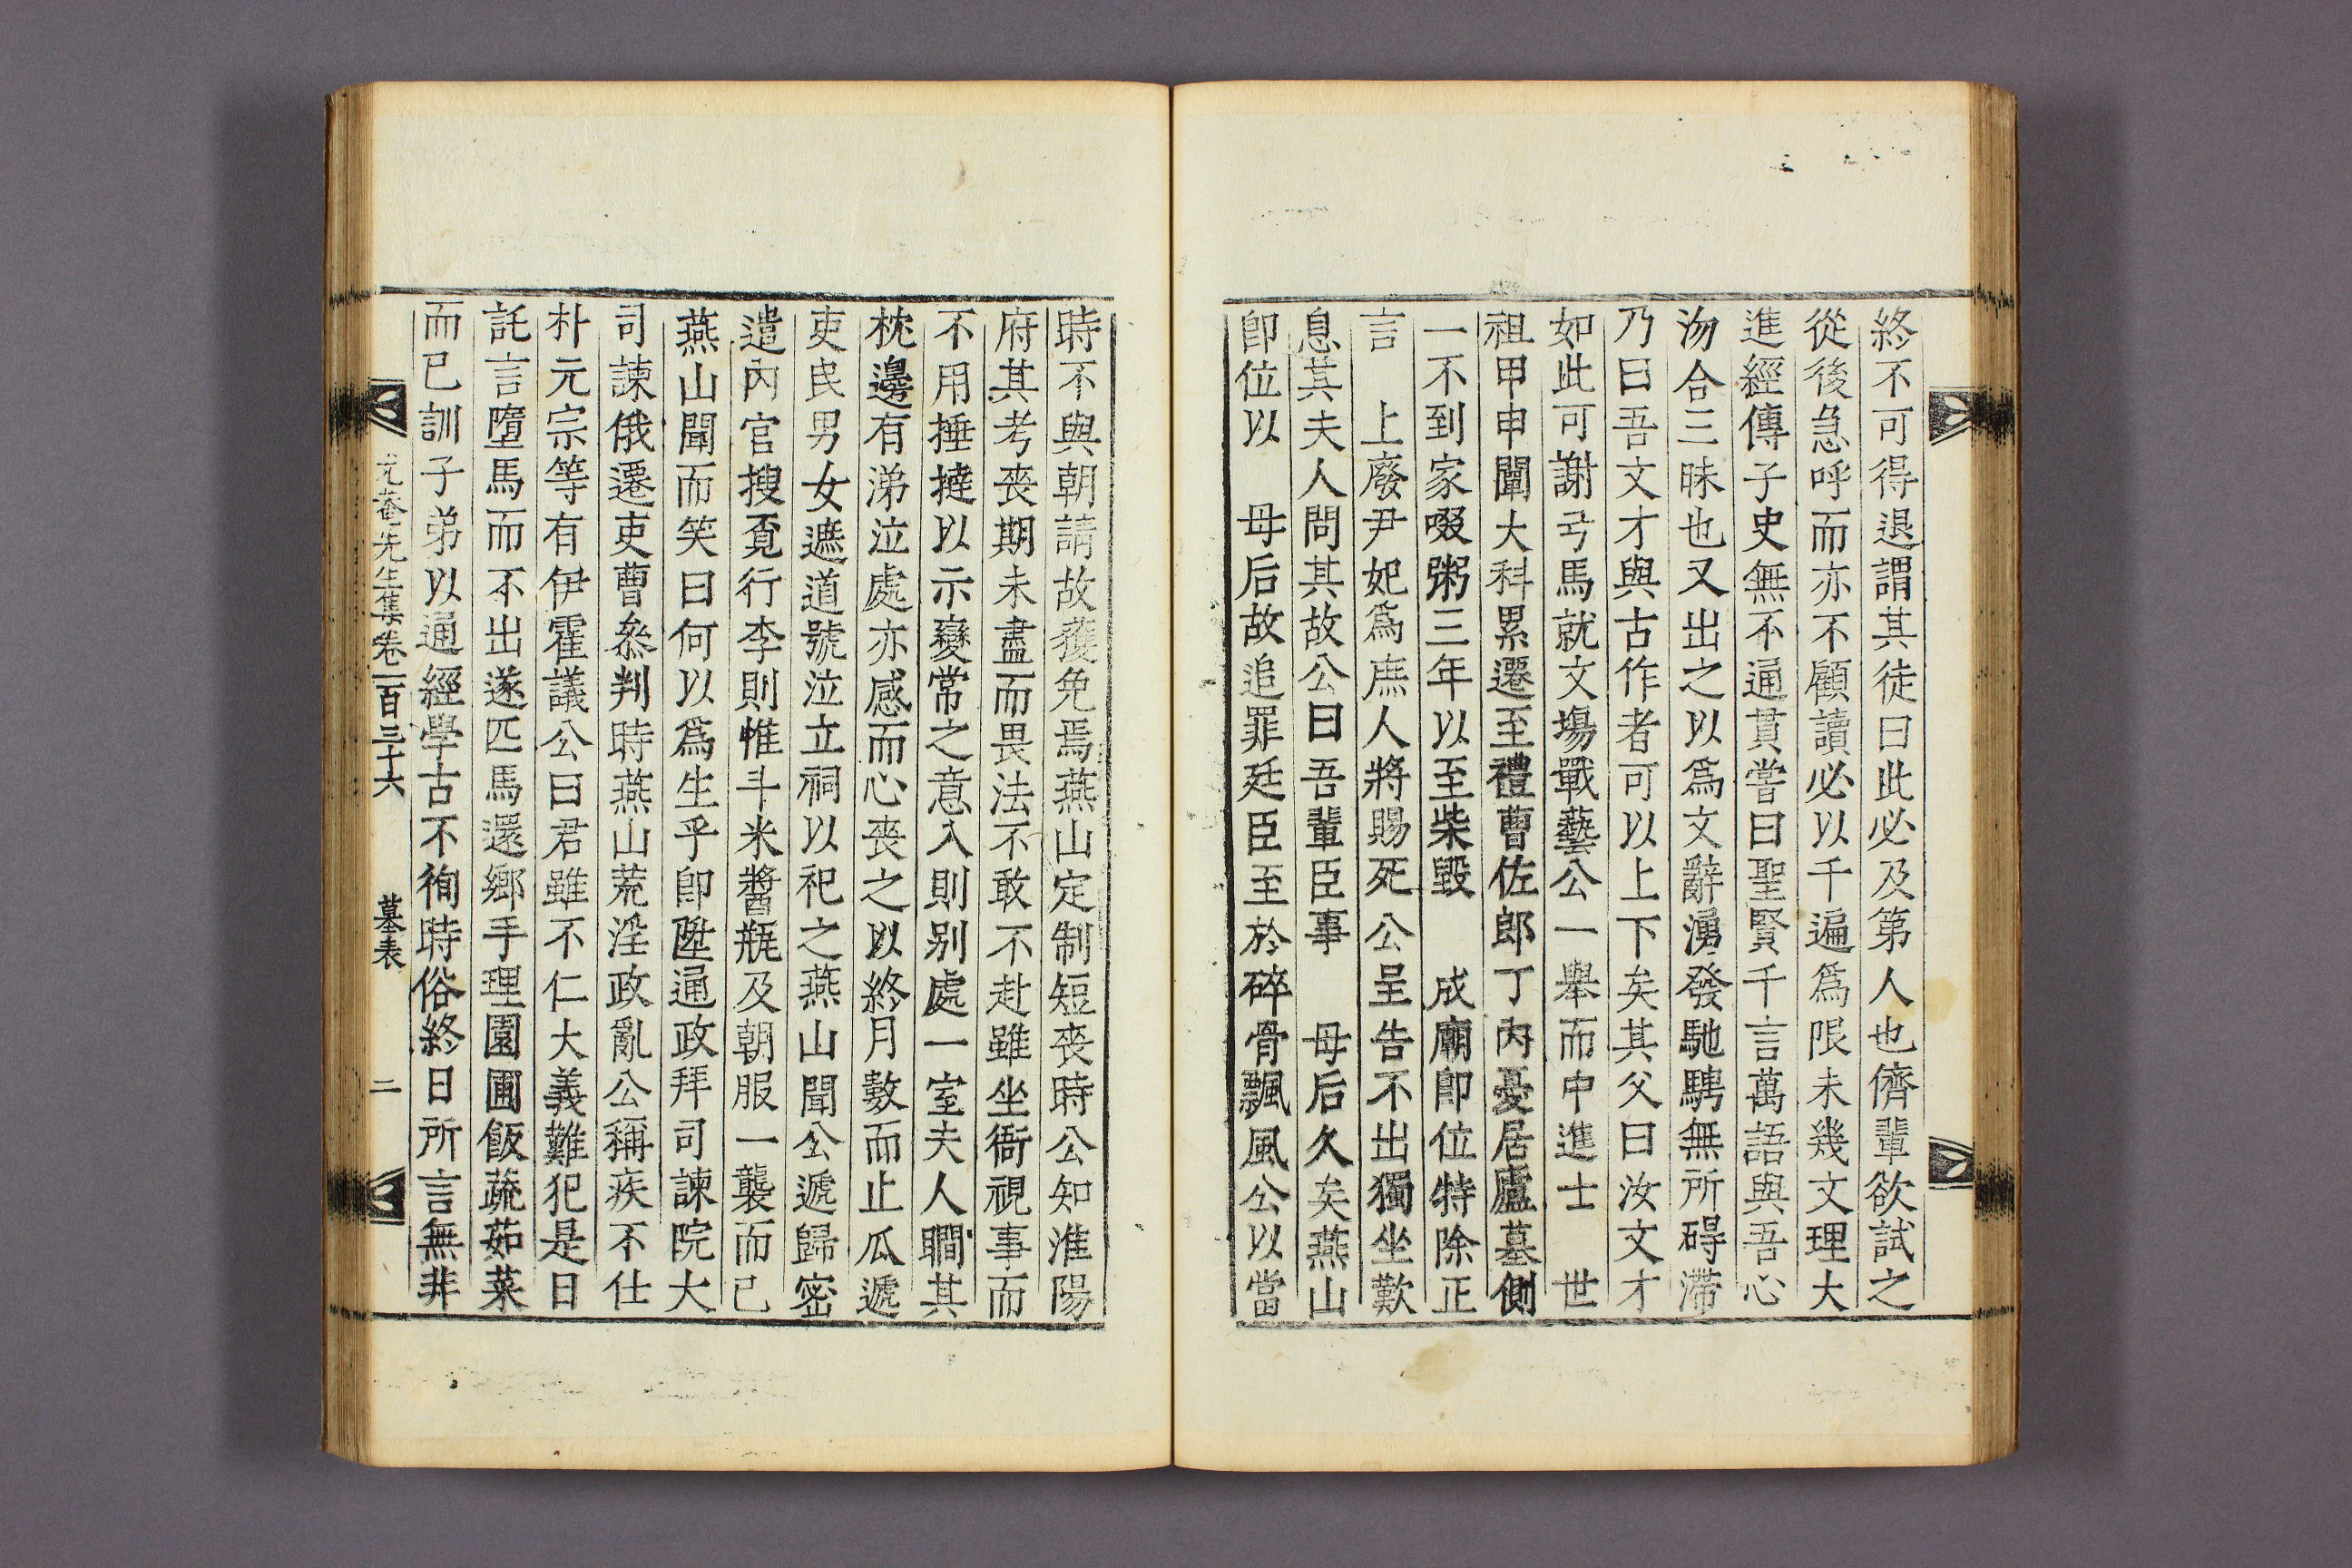 終不可得退謂其徒曰此必及第人也儕輩欲試之
從後急呼而亦不顧讀必以千遍爲限未幾文理大
進經傳子史無不通貫嘗曰聖賢千言萬語與吾心
沕合三昧也又出之以爲文辭湧發馳騁無所碍滯
乃曰吾文才與古作者可以上下矣其父曰汝文才
如此可謝弓馬就文場戰藝公一舉而中進士　世
祖甲申闡大科累遷至禮曹佐郎丁內憂居廬墓側
一不到家啜粥三年以至柴毀　成廟卽位特除正
言　上廢尹妃爲庶人將賜死公呈告不出獨坐歎
息其夫人問其故公曰吾輩臣事　母后久矣燕山
卽位以　母后故追罪廷臣至於碎骨飄風公以當
時不與朝請故獲免焉燕山定制短喪時公知淮陽
府其考喪期未盡而畏法不敢不赴雖坐衙視事而
不用捶撻以示變常之意入則別處一室夫人瞷其
枕邊有涕泣處亦感而心喪之以終月數而止瓜遞
吏民男女遮道號泣立祠以祀之燕山聞公遞歸密
遣內官搜覔行李則惟斗米醬甁及朝服一襲而已
燕山聞而笑曰何以爲生乎卽陞通政拜司諫院大
司諫俄遷吏曹叅判時燕山荒淫政亂公稱疾不仕
朴元宗等有伊霍議公曰君雖不仁大義難犯是日
託言墮馬而不出遂匹馬還鄉手理園圃飯蔬茹菜
而已訓子弟以通經學古不徇時俗終日所言無非
尤菴先生集卷一百三十六　墓表　二